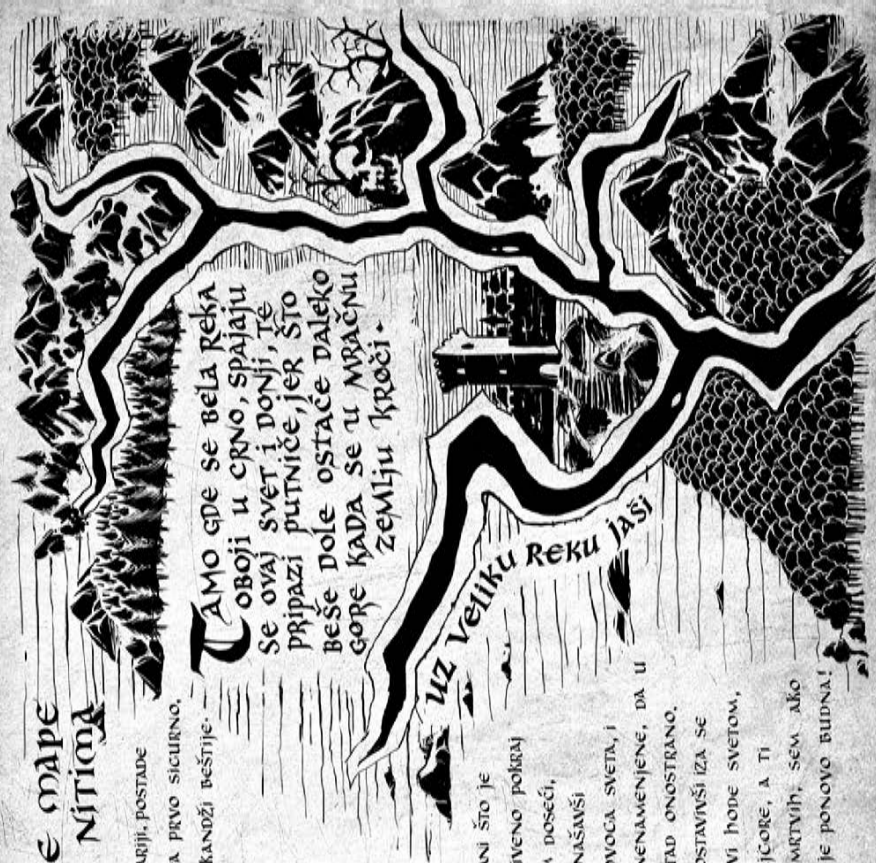 E MAPE
NITIMA
ARIJI, POSTADE
A PRVO SIGURNO,
KANDŽI BEŠTIJE.
TAMO GDE SE BELA REKA
OBOJI U CRNO, SPAJAJU
SE OVAJ SVET I DONJI, TE
PRIPAZI PUTNIČE, JER ŠTO
BEŠE DOLE OSTAĆE DALEKO
GORE KADA SE U MRAČNU
ZEMLJU KROČI.
UZ VELIKU REKU JAŠI
ANI ŠTO JE
IVENO POKRAJ
DOSEĆI,
NAŠAVŠI
OVOCA SVETA, I
NENAMENJENE, DA U
TAD ONOSTRANO.
OSTAVIVŠI IZA SE
VI HODE SVETOM,
ĆORE, A TI
MRTVIH, SEM AKO
JE PONOVO BUDNA!